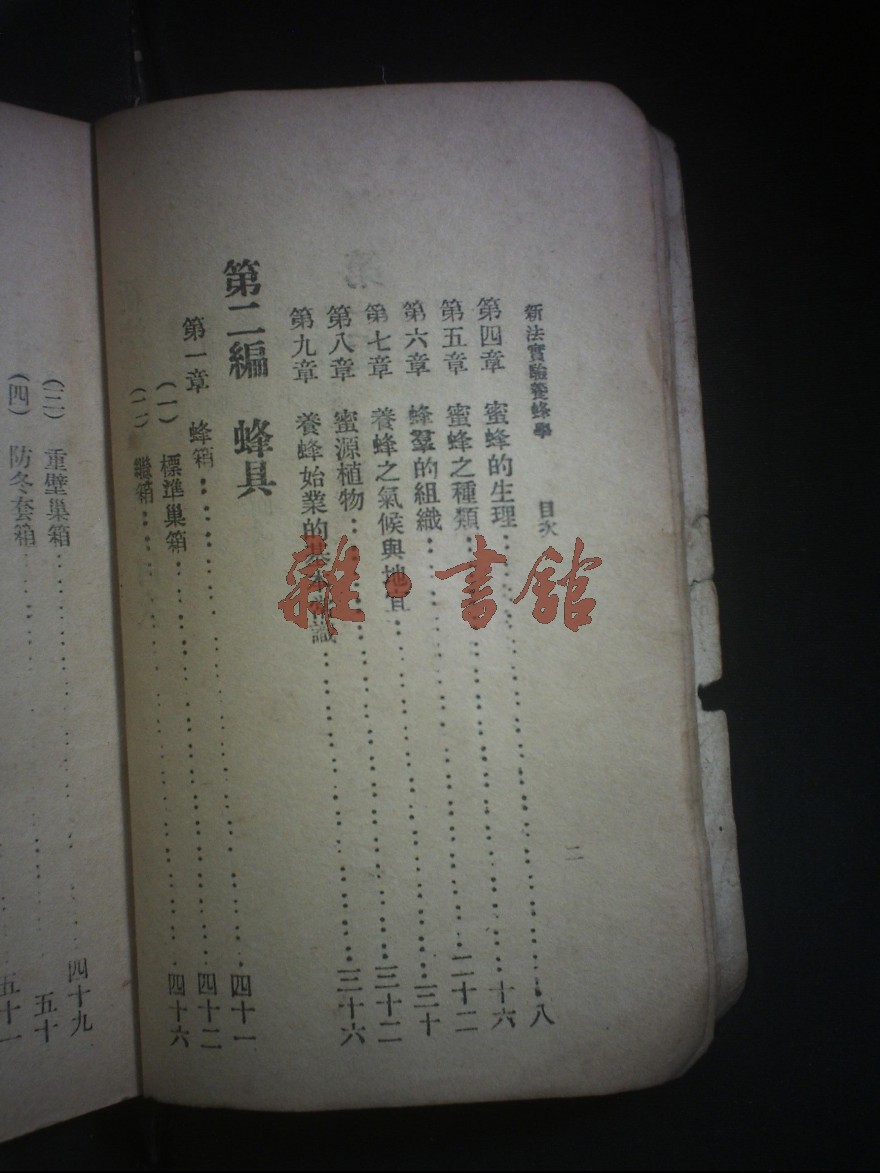 新法實驗養蜂學 目次 二
第四章 蜜蜂的生理……八
第五章 蜜蜂之種類……十六
第六章 蜂羣的組織……二十二
第七章 養蜂之氣候與地宜……三十
第八章 蜜源植物……三十二
第九章 養蜂始業的基本識……三十六
第二編 蜂具
第一章 蜂箱……四十一
(一) 標準巢箱……四十二
(二) 繼箱……四十六
(三) 重壁巢箱……四十九
(四) 防冬套箱……五十
五十一
雜·書館